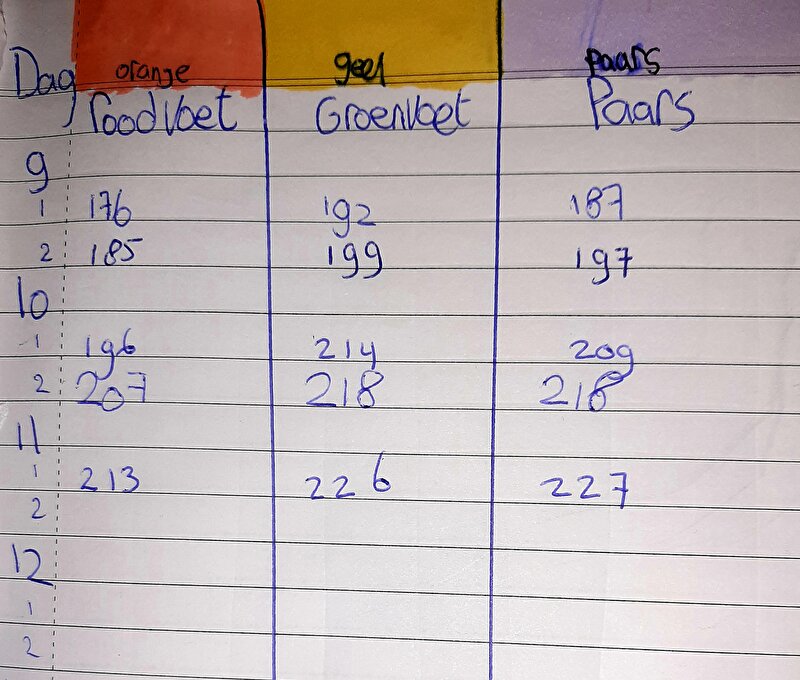 Dag orange geel paars
roodvoet Groenvoet Paars
9
1 176 192 187
2 185 199 197
10
1 196 214 209
2 207 218 218
11
1 213 226 227
2
12
1
2